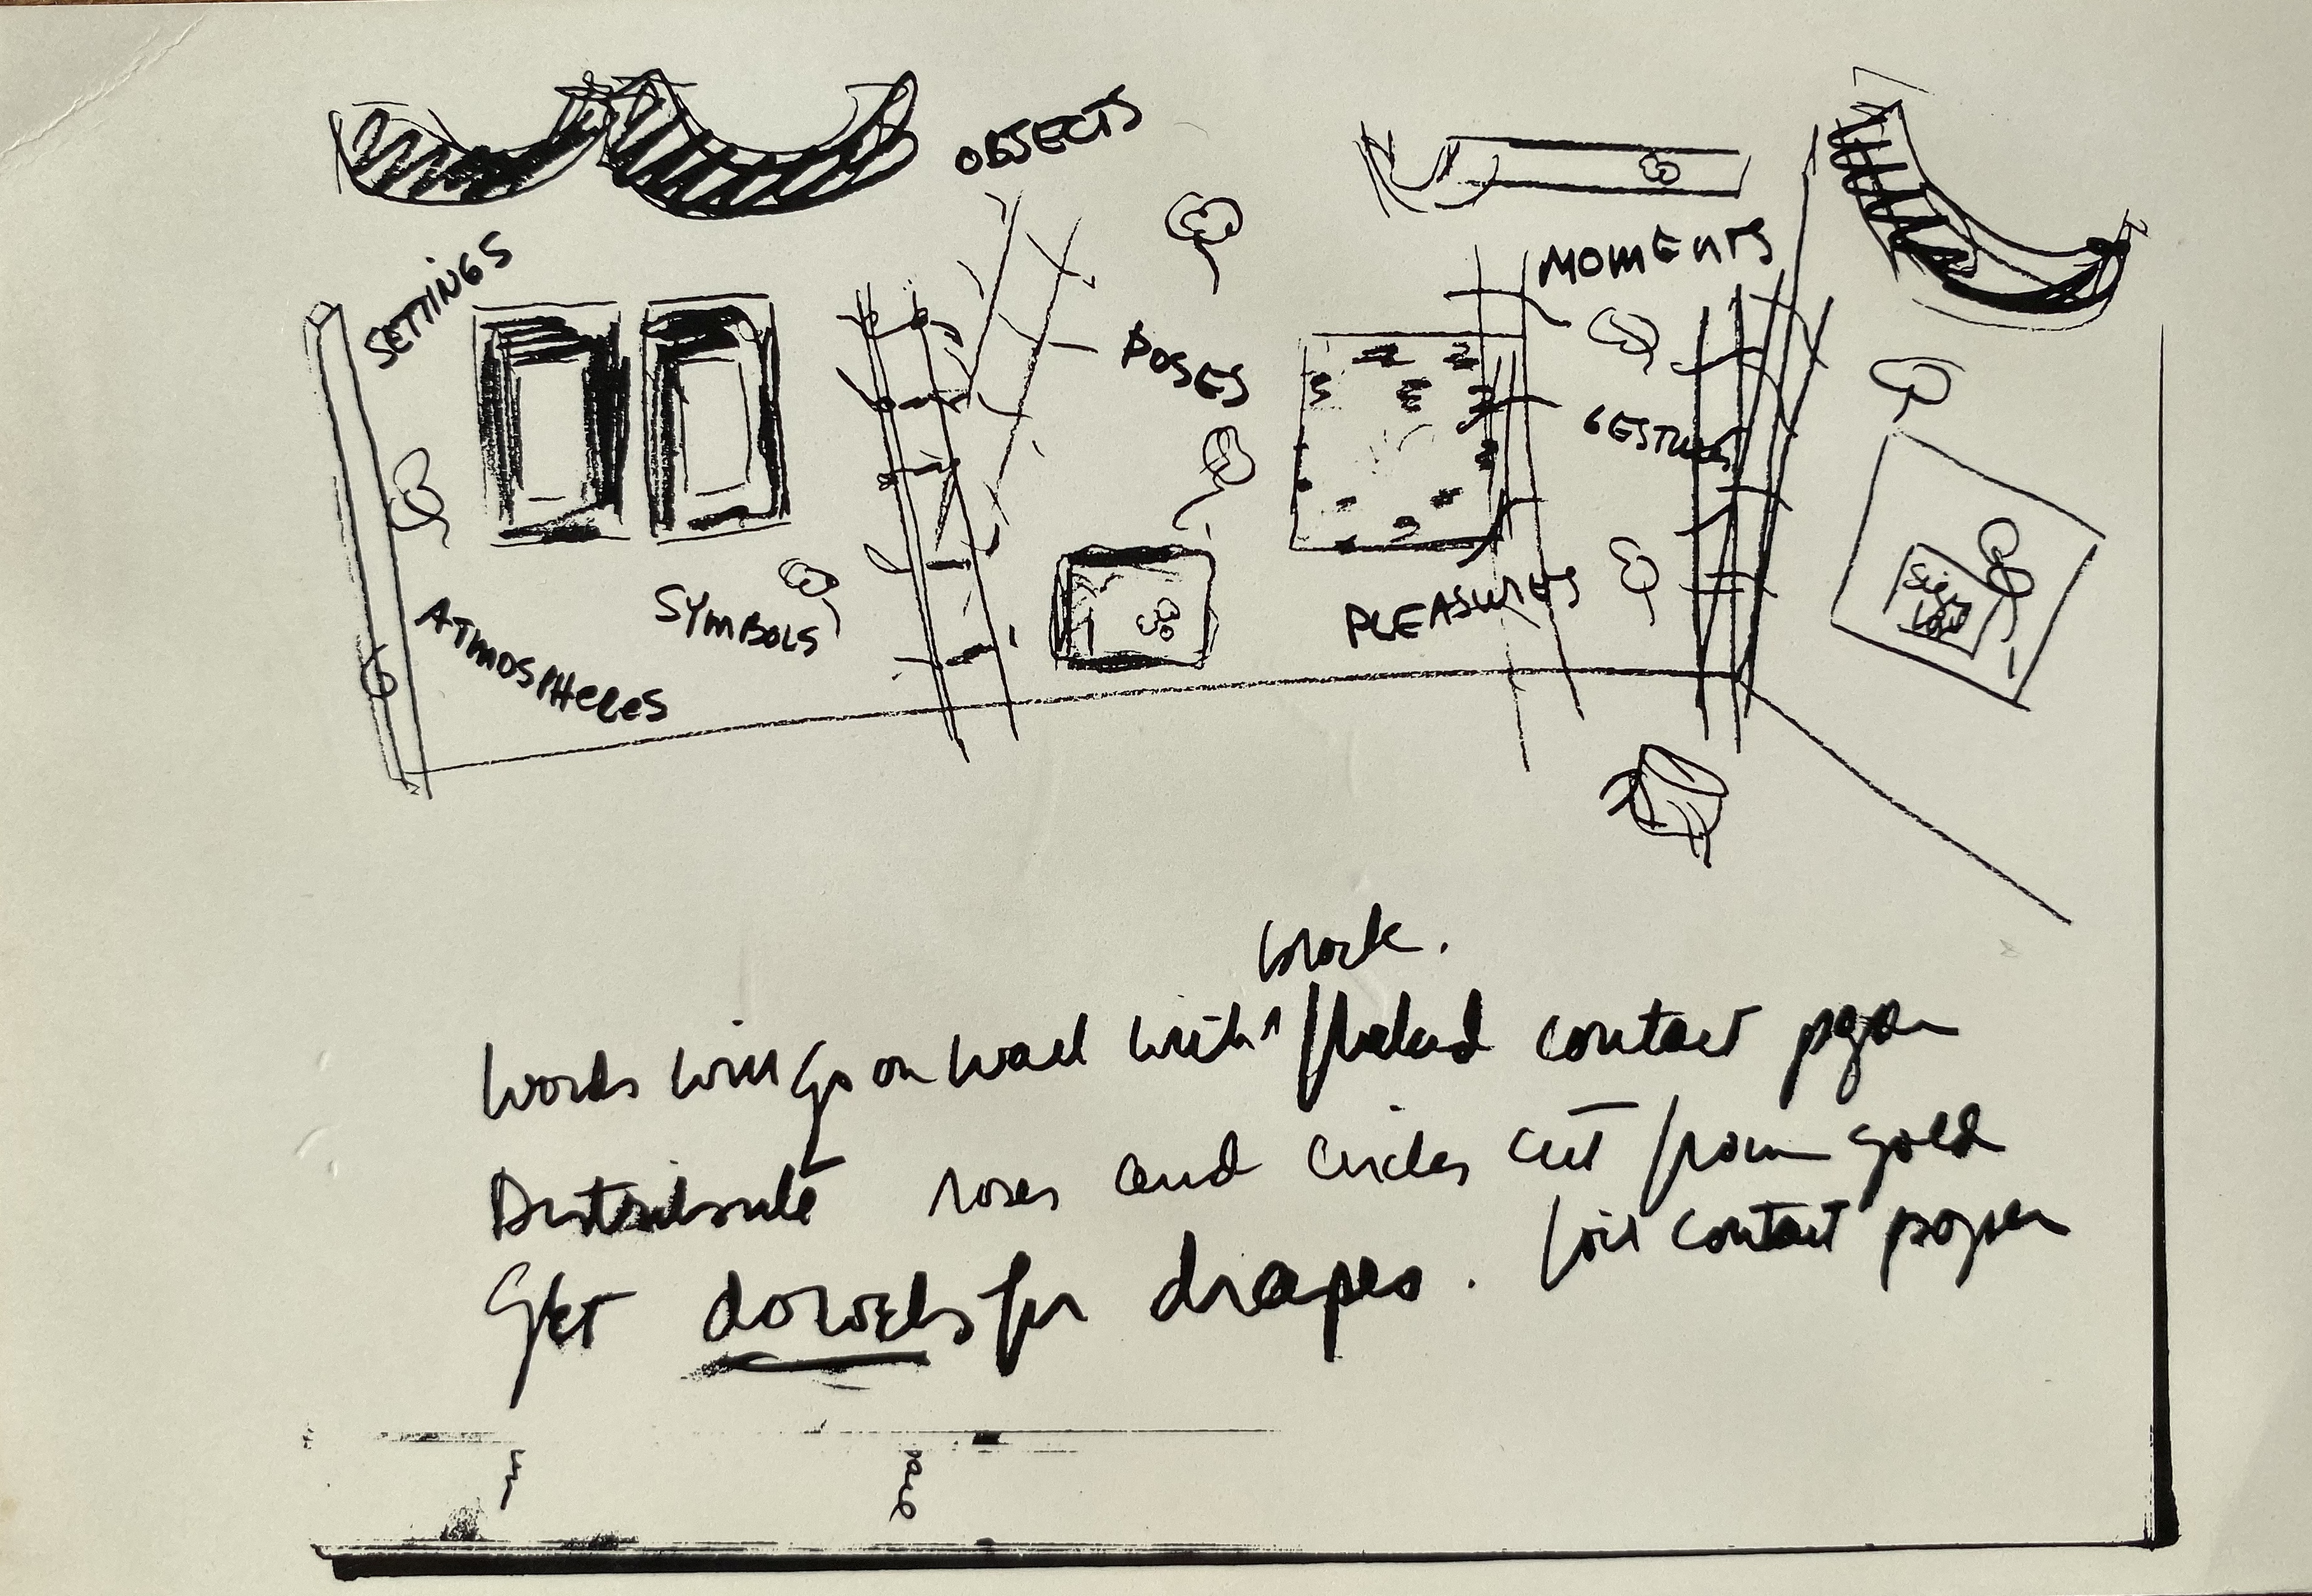 OBJECTS
MOMENTS
SETTINGS
POSES
GESTURES
SYMBOLS
PLEASURES
ATMOSPHERES
work.
Words will go on wall with contact paper
Distribute roses and circles cut from gold
foil contact paper
Get dowels for drapes.